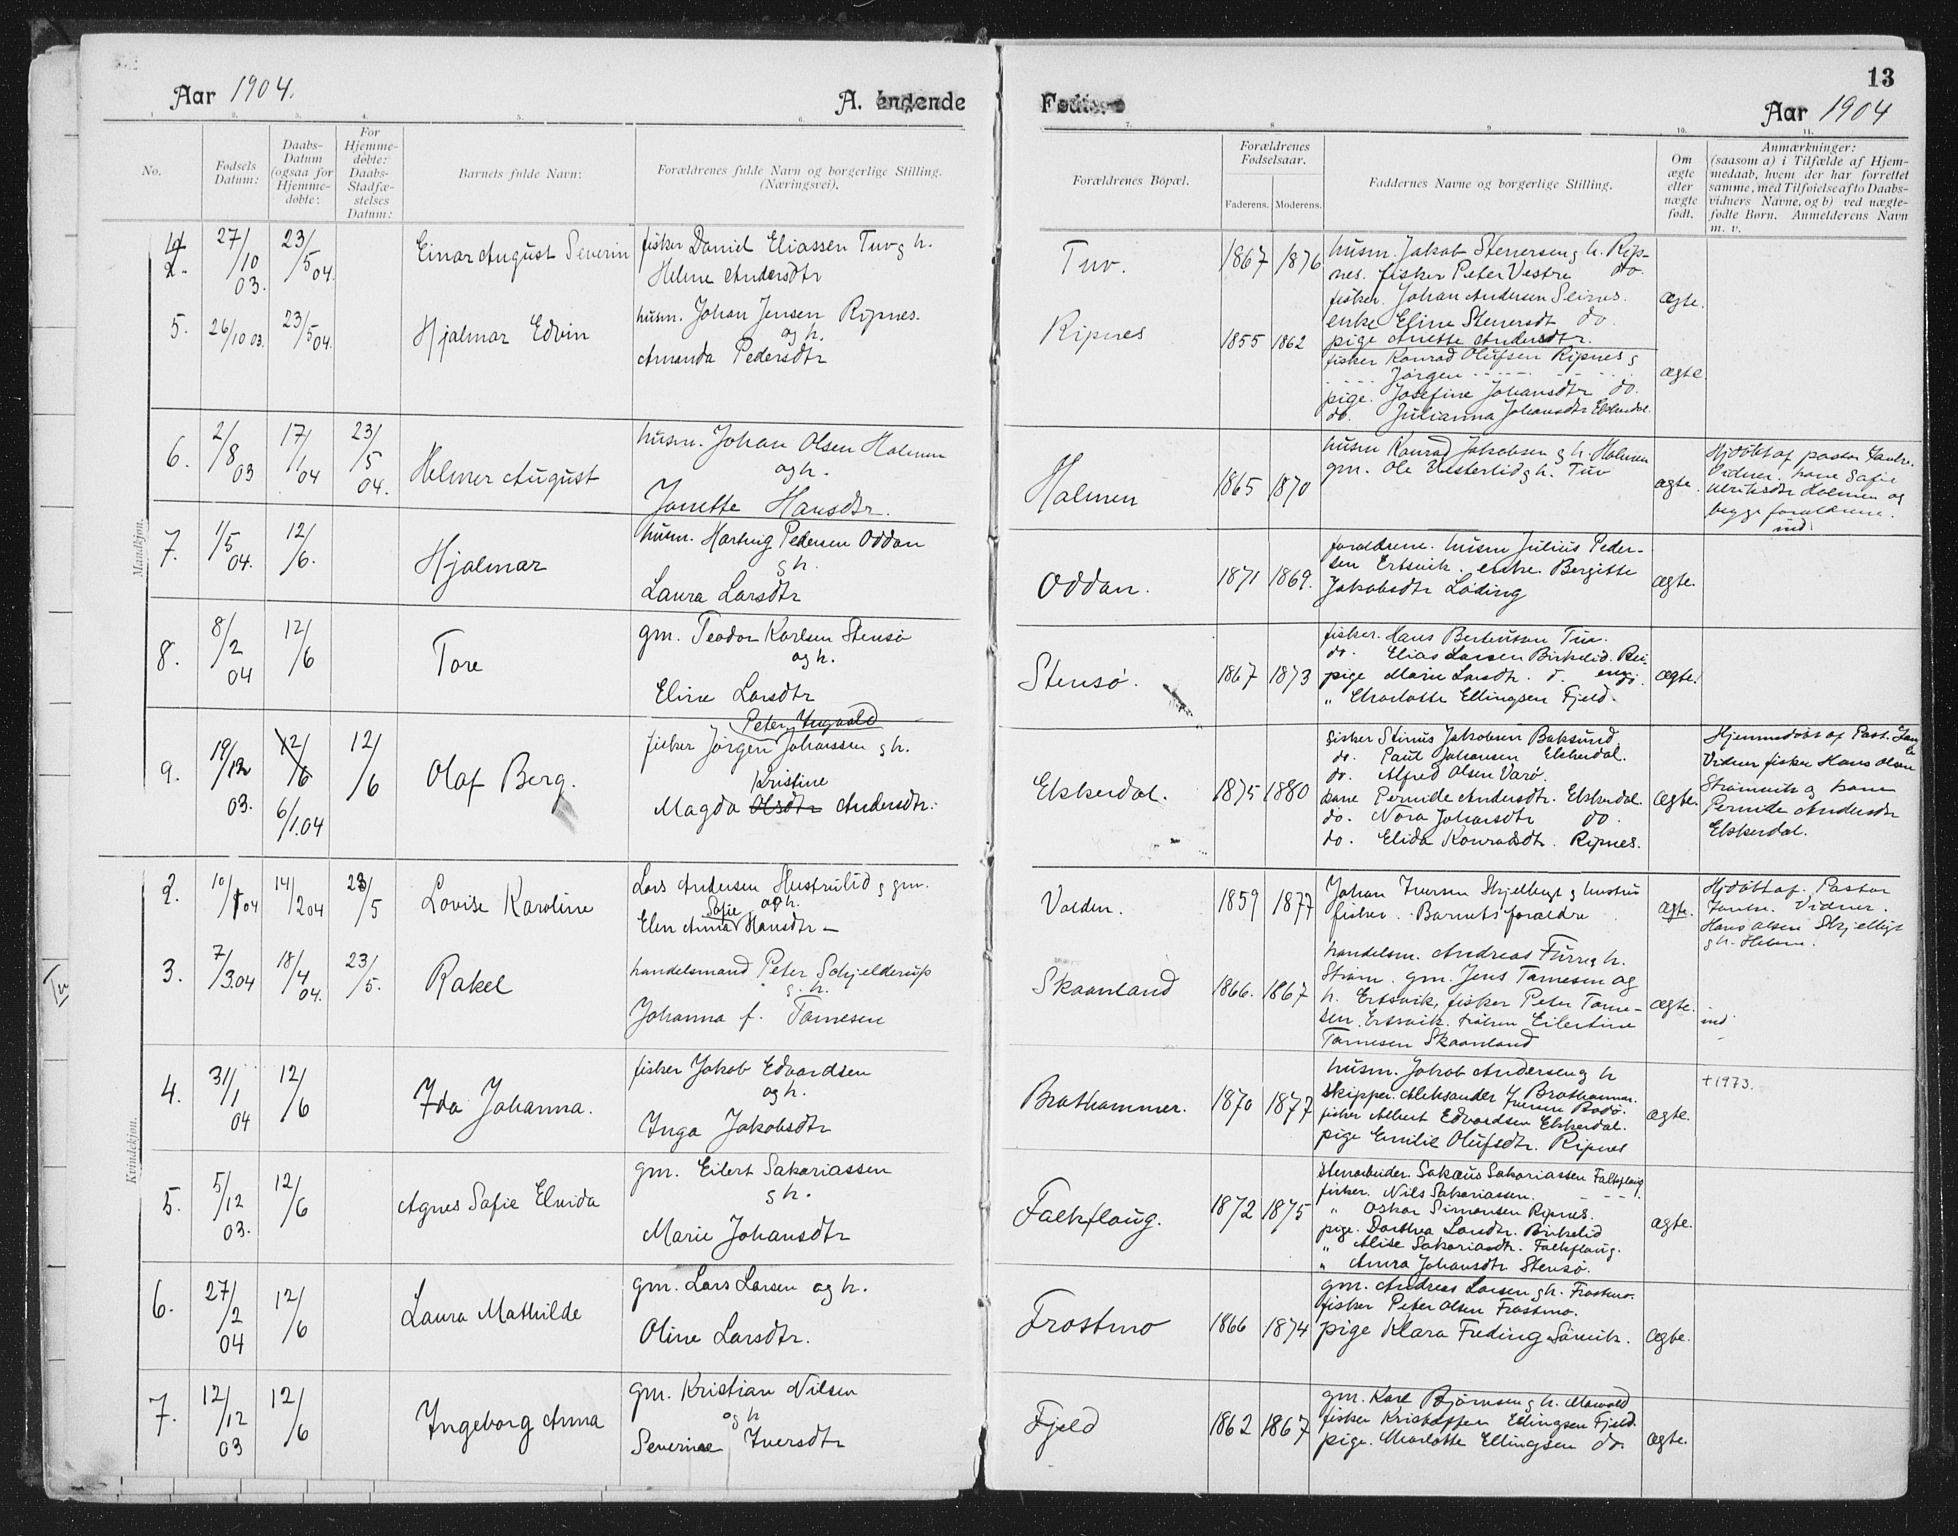 Aar 1904.
A. Levende
Fødte
13
Aar 1904
1. 2. 3. 4. 5. 6. 7. 8. 9. 10. 11.
No.
Fødsels Datum:
Daabs-Datum (ogsaa for Hjemme-døbte:
For Hjemme-døbte: Daabs-Stadfæ-stelses Datum:
Barnets fulde Navn:
Forældrenes fulde Navn og borgerlige Stilling. (Næringsvei).
Forældrenes Bopæl.
Forældrenes Fødselsaar.
Faderens. Moderens.
Faddernes Navne og borgerlige Stilling.
Om ægte eller nægte født.
Anmærkninger:
(saasom a) i Tilfælde af Hjem-
medaab, hvem der har forrettet
samme, med Tilføielse af to Daabs-
vidners Navne, og b) ved nægte-
fødte Børn. Anmelderens Navn
m. v.
Mandkjøn.
4. 27/10 03. 23/5 04. Einar August Severin
fisker Daniel Eliassen Tuv g h.
Helene Andersdtr
Tuv. 1867 1876
husm. Jakob Stenersen g h. Rip-
nes. fisker Peter Vestre do.
fisker. Johan Andersen Seines.
enke Eline Stenersdt do.
pige Anette Andersdtr.
ægte.
5. 26/10 03. 23/5 04. Hjalmar Edvin
husm. Johan Jensen Ripnes.
og h.
Amanda Pedersdtr
Ripnes 1855 1862
fisker Konrad Olufsen Ripnes g
Jørgen
pige. Josefine Johansdtr do.
do. Julianna Johansdtr Elskerdal.
ægte.
6. 2/8 03 17/1 04 23/5 04. Helmer August
husm. Johan Olsen Holmen
og h.
Janette Hansdtr.
Holmen 1865 1870
husm Konrad Jakobsen g h. Holmen
gm. Ole Vesterlid g h. Tuv
ægte.
Hjdøbt af pastor
Vidner. kone Sofie
Ulriksdtr Holmen og
begge forældrene.
ind.
7. 1/5 04. 12/6. Hjalmar
husm. Hartvig Pedersen Oddan
g h.
Laura Larsdtr
Oddan. 1871 1869.
forældrene. husm Julius Peder-
sen Ertsvik. enke. Bergitte
Jakobsdtr Løding
ægte.
8. 8/2 04 12/6 Tore
gm. Teodor Karlsen Stensø
og h.
Eline Larsdtr
Stensø. 1867 1873
fisker. Hans Berntsen Tuv.
do. Elias Larsen Birkelid.
pige Marie Larsdtr. d.
" Charlotte Ellingsen Fjeld.
ægte.
9. 19/12 03. 12/6 6/1.04 12/6 Olaf Berg.
Peter Ingvald
fisker Jørgen Johanssen g h.
Kristine
Magda Olsdtr Andersdtr.
Elskerdal. 1875 1880
fisker Stinus Jakobsen Baksund
do. Paul Johansen Elskerdal.
do. Alfred Olsen Varø.
kone Pernille Andersdtr. Elskerdal.
do. Nora Johansdtr do.
do. Elida Konradsdtr. Ripnes.
ægte.
Hjemmedøbt af Past.
Vidner fisker Hans Olsen
Strømvik og kone
Pernille Andersdtr
Elskerdal.
Kvindekjøn.
2. 10/1 04 14/2 04 23/5 Lovise Karoline
Lars Andersen Hustrulid g gm.
Sofie og h.
Elen Anna Hansdtr –
Valden. 1859 1877
Johan Iversen Skjelbugt g hustru
fisker. Barnets forældre
ægte.
Hjdøbt af. Pastor
Vidner.
Hans Olsen Skjelbugt
g h. Helene.
3. 7/3.04 18/4 04. 23/5. Rakel
handelsmand Peter Schjelderup
g. h.
Johanna f. Tømesen
Skaanland 1866. 1867
handelsm. Andreas Furre g h.
Strøm. gm. Jens Tømesen og
h. Ertsvik, fisker Peter Tøme-
sen. Ertsvik. frøken Eilertine
Tømesen Skaanland
ægte.
ind
4. 31/1 04 12/6 Ida Johanna.
fisker Jakob Edvardsen
og h.
Inga Jakobsdtr
Brathammer. 1870 1877
husm. Jakob Andersen g h
Brathammer.
skipper. Aleksander Iversen Bodø.
fisker Albert Edvardsen Elskerdal.
pige Emilie Olufsdtr. Ripnes
ægte.
+1973.
5. 5/12 03. 12/6 Agnes Sofie Elvida
gm. Eilert Sakariassen
g h.
Marie Johansdtr
Falkflaug. 1872 1875
stenarbeider. Sakæus Sakariassen Falkflaug
fisker. Nils Sakariassen.
" Oskar Simonsen Ripnes.
pige. Dorthea Larsdtr. Birkelid
" Alise Sakariasdtr. Falkflaug.
" Anna Johansdtr Stensø.
ægte.
6. 27/2 04 12/6 Laura Mathilde
gm. Lars Larsen og h.
Oline Larsdtr.
Frostmo 1866 1874
gm. Andreas Larsen g h. Frostmo.
fisker Peter Olsen Frostmo.
pige Klara Freding Sørvik.
ægte.
7. 12/12 03 12/6 Ingeborg Anna
gm. Kristian Nilsen
og h
Severine Iversdtr
Fjeld 1862 1867
gm. Karl Bjørnsen g h.
fisker Kristoffer Ellingsen Fjeld.
pige. Charlotte Ellingsen do.
ægte.